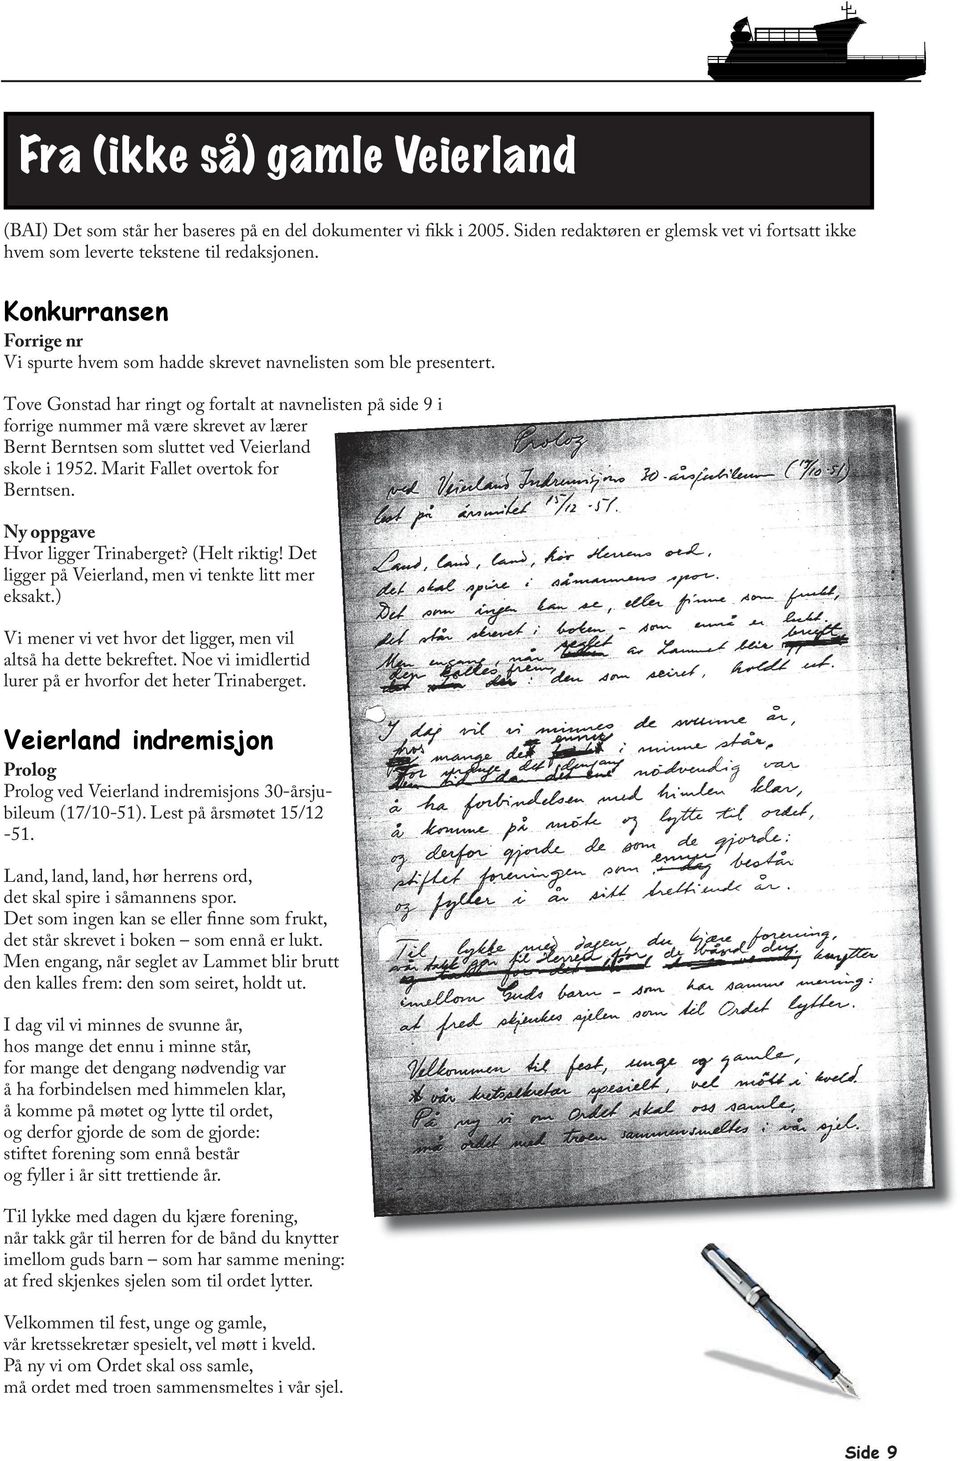 Fra (ikke så) gamle Veierland
(BAI) Det som står her baseres på en del dokumenter vi fikk i 2005. Siden redaktøren er glemsk vet vi fortsatt ikke
hvem som leverte tekstene til redaksjonen.
Konkurransen
Forrige nr
Vi spurte hvem som hadde skrevet navnelisten som ble presentert.
Tove Gonstad har ringt og fortalt at navnelisten på side 9 i
forrige nummer må være skrevet av lærer
Bernt Berntsen som sluttet ved Veierland
skole i 1952. Marit Fallet overtok for
Berntsen.
Ny oppgave
Hvor ligger Trinaberget? (Helt riktig! Det
ligger på Veierland, men vi tenkte litt mer
eksakt.)
Vi mener vi vet hvor det ligger, men vil
altså ha dette bekreftet. Noe vi imidlertid
lurer på er hvorfor det heter Trinaberget.
Veierland indremisjon
Prolog
Prolog ved Veierland indremisjons 30-årsju-
bileum (17/10-51). Lest på årsmøtet 15/12
-51.
Land, land, land, hør herrens ord,
det skal spire i såmannens spor.
Det som ingen kan se eller finne som frukt,
det står skrevet i boken – som ennå er lukt.
Men engang, når seglet av Lammet blir brutt
den kalles frem: den som seiret, holdt ut.
I dag vil vi minnes de svunne år,
hos mange det ennu i minne står,
for mange det dengang nødvendig var
å ha forbindelsen med himmelen klar,
å komme på møtet og lytte til ordet,
og derfor gjorde de som de gjorde:
stiftet forening som ennå består
og fyller i år sitt trettiende år.
Til lykke med dagen du kjære forening,
når takk går til herren for de bånd du knytter
imellom guds barn – som har samme mening:
at fred skjenkes sjelen som til ordet lytter.
Velkommen til fest, unge og gamle,
vår kretssekretær spesielt, vel møtt i kveld.
På ny vi om Ordet skal oss samle,
må ordet med troen sammensmeltes i vår sjel.
Prolog
ved Veierland Indremisjons 30-årsjubileum (17/10-51)
lest på årsmøtet 15/12 -51.
Land, land, land, hør Herrens ord,
det skal spire i såmannens spor.
Det som ingen kan se, eller finne som frukt,
det står skrevet i boken – som ennå er lukt.
Men engang, når seglet av Lammet blir brutt
den kalles frem: den som seiret, holdt ut.
I dag vil vi minnes de svunne år,
hos mange det ennu i minne står,
for mange det dengang nödvendig var
å ha forbindelsen med himlen klar,
å komme på möte og lytte til ordet,
og derfor gjorde de som de gjorde:
stiftet foreningen som ennu består
og fyller i år sitt trettiende år.
Til lykke med dagen du kjære forening,
når takk går til Herren for de bånd du knytter
imellom Guds barn – som har samme mening:
at fred skjenkes sjelen som til Ordet lytter.
Velkommen til fest, unge og gamle,
vår kretssekretær spesielt, vel mött i kveld.
På ny vi om Ordet skal oss samle,
må ordet med troen sammensmeltes i vår sjel.
Side 9